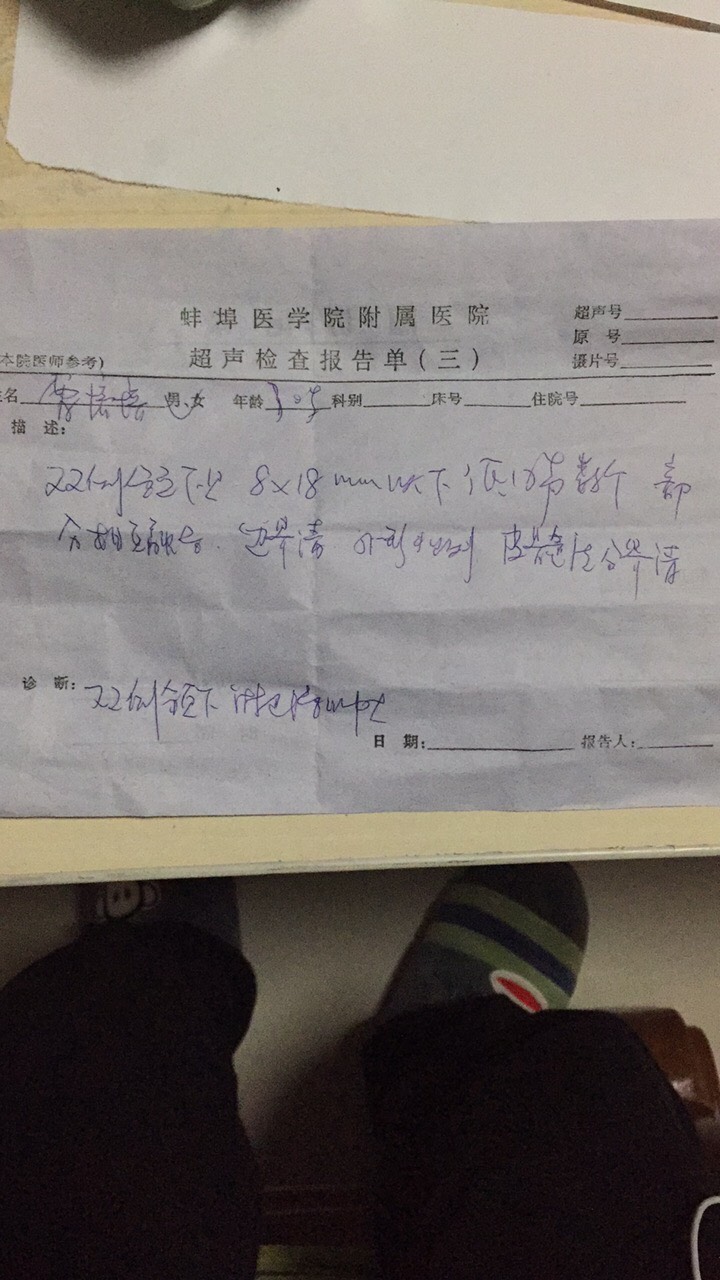 蚌埠医学院附属医院
超声号
原 号
本院医师参考)
超声检查报告单(三)
摄片号
名 男、女 年龄 科别 床号 住院号
描 述:
双侧颌下见 8×18mm以下低回声数个 部
分相互融合. 边界清 皮髓质分界清
诊 断: 双侧颌下淋巴结肿大
日 期: 报告人: